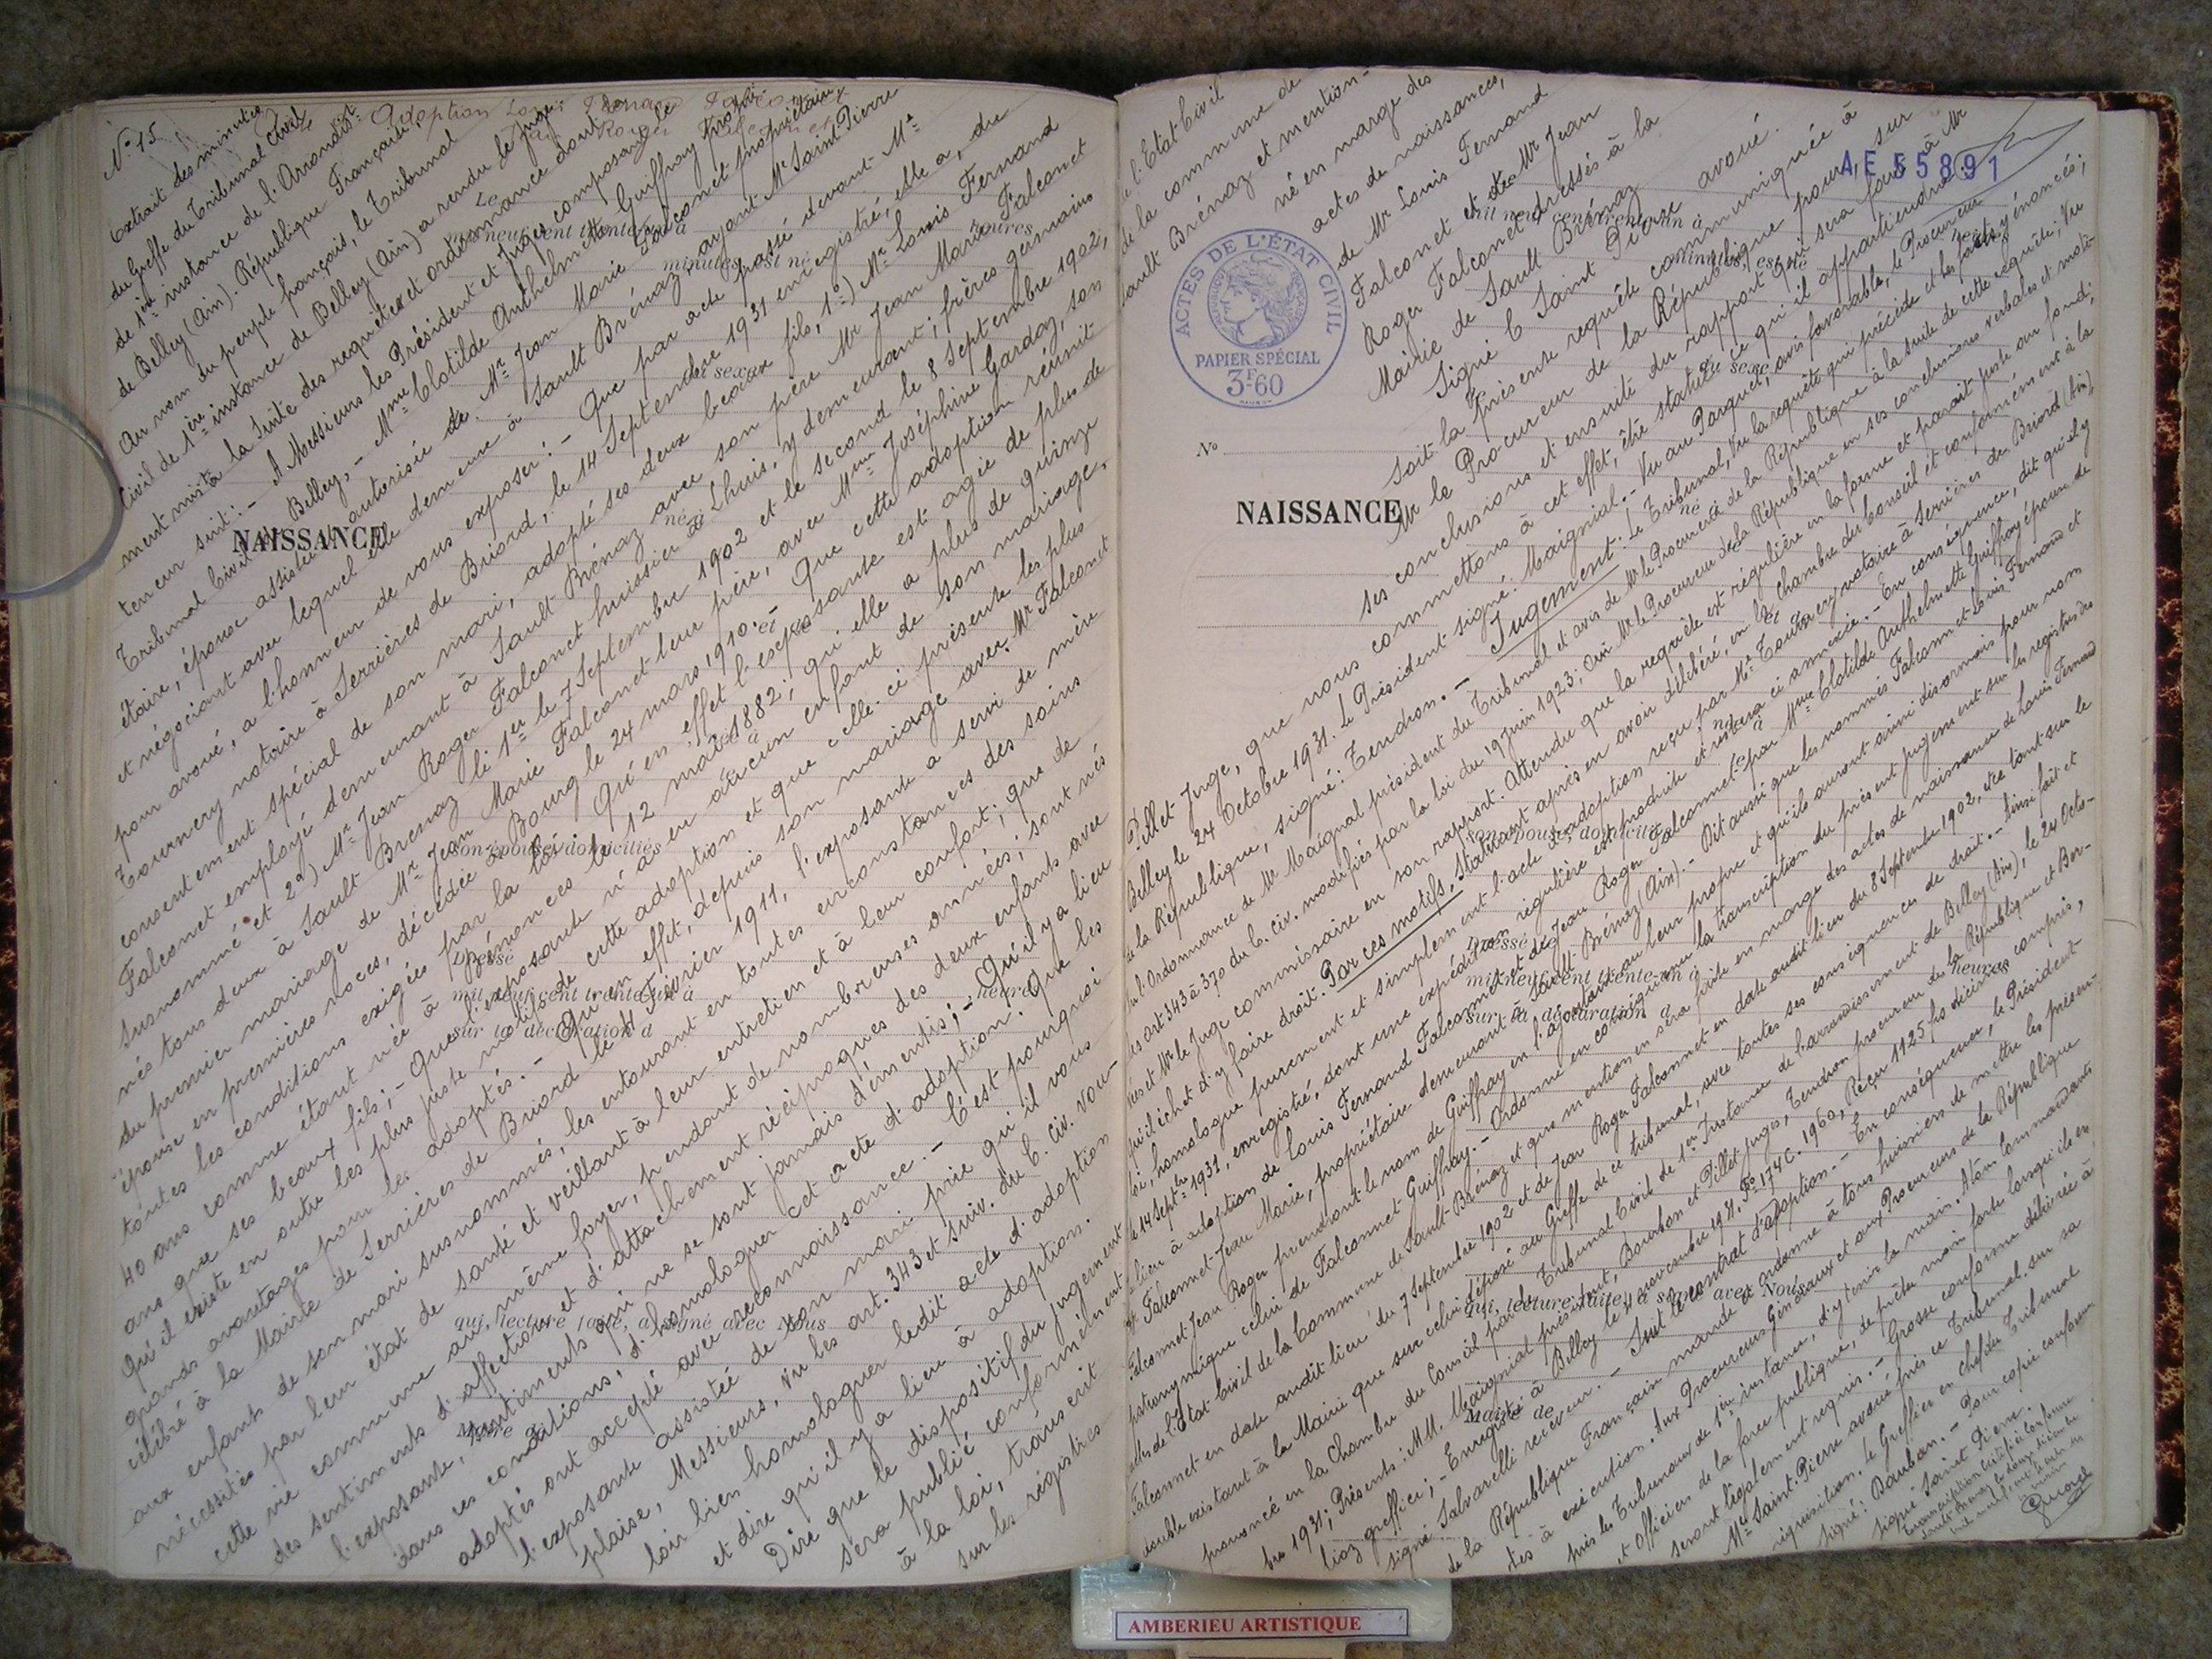 N° 15
Adoption Louis Fernand Falconnet
Jean Roger Falconnet
Extrait des minutes
du Greffe du Tribunal Civil
de 1ère instance de l'Arrondist
de Belley (Ain). République Française,
Au nom du peuple français, le Tribunal
Civil de 1ère instance de Belley (Ain) a rendu le juge-
ment mis à la suite des requête et ordonnance dont la
teneur suit:- A Messieurs les Président et Juges composant le
Tribunal Civil de Belley,- Mme Clotilde Anthelmette Guiffray propri-
étaire, épouse assistée et autorisée de Mr Jean Marie Falconnet propriétaire
et négociant avec lequel elle demeure à Sault Brénaz, ayant Me Saint-Pierre
pour avoué, a l'honneur de vous exposer:- Que par acte passé devant Me
Tournery notaire à Serrières de Briord, le 14 Septembre 1931 enregistré, elle a, du
consentement spécial de son mari, adopté ses deux beaux fils, 1°) Mr Louis Fernand
Falconet employé demeurant à Sault Brénaz avec son père Mr Jean Marie Falconet
susnommé et 2°) Mr Jean Roger Falconet huissier à Lhuis, y demeurant; frères germains
nés tous deux à Sault Brenaz le 1er le 7 Septembre 1902 et le second le 8 Septembre 1902,
du premier mariage de Mr Jean Marie Falconet leur père, avec Mme Joséphine Gardoz, son
épouse en premières noces, décédée à Bourg le 24 mars 1910.- Que cette adoption réunit
toutes les conditions exigées par la loi; Qu'en effet l'exposante est agée de plus de
40 ans comme étant née à Bénonces le 12 mai 1882; qu'elle a plus de quinze
ans que ses beaux fils;- Que l'exposante n'a eu aucun enfant de son mariage,
Qu'il existe en outre les plus juste motifs de cette adoption et que celle-ci présente les plus
grands avantages pour les adoptés.- Qu'en effet, depuis son mariage avec Mr Falconet
célébré à la Mairie de Serrières de Briord le 4 Février 1911, l'exposante a servi de mère
aux enfants de son mari susnommés, les entourant en toutes circonstances des soins
nécessités par leur état de santé et veillant à leur entretien et à leur confort; que de
cette vie commune au même foyer, pendant de nombreuses années, sont nés
des sentiments d'affection et d'attachement réciproques des deux enfants avec
l'exposante, sentiments qui ne se sont jamais démentis;- Qu'il y a lieu
dans ces conditions, d'homologuer cet acte d'adoption. Que les
adoptés ont accepté avec reconnaissance.- C'est pourquoi
l'exposante assistée de son mari prie qu'il vous
plaise, Messieurs, vu les art. 343 et suiv. du C. Civ. vou-
loir bien homologuer ledit acte d'adoption
et dire qu'il y a lieu à adoption.
Dire que le dispositif du jugement
sera publié conformément
à la loi, transcrit
sur les régistres
NAISSANCE
Le
mil neuf cent trente à
heures
minutes, est né
du sexe
né à
et de
née à
son épouse, domiciliés
Dressé le
mil neuf cent trente un à
heures
sur la déclaration d
qui, lecture faite, a signé avec Nous
Maire de
de l'Etat Civil
de la commune de
Sault Brénaz et mention-
né en marge des
actes de naissances,
de Mr Louis Fernand
Falconet et de Mr Jean
Roger Falconet dressés à la
Mairie de Sault Brénaz
Signé C. Saint Pierre avoué.
AE 55891
ACTES DE L'ÉTAT CIVIL
PAPIER SPÉCIAL
3F.60
N°
NAISSANCE
mil neuf cent trente un à
heures
minutes, est né
du sexe
né
et de
née à
son épouse, domiciliés
Dressé le
mil neuf cent trente un à
heures
sur la déclaration d
qui, lecture faite, a signé avec Nous
Maire de
Soit la présente requête communiquée à
Mr le Procureur de la République pour, sur
ses conclusions et ensuite du rapport qui sera fait à Mr
Pillet Juge, que nous commettons à cet effet, être statué ce qu'il appartiendra.
Belley le 24 Octobre 1931. Le Président signé. Maignial.- Vu au Parquet, avis favorable, le Procureur
de la République, signé: Tendron.- Jugement. Le Tribunal, Vu la requête qui précède et les faits y énoncés;
Vu l'Ordonnance de Mr Maignal président du Tribunal et avis de Mr le Procureur de la République à la suite de cette requête; Vu
les art 343 à 370 du C. civ. modifiés par la loi du 19 Juin 1923; Ouï Mr le Procureur de la République en ses conclusions verbales et moti-
vées et Mr le Juge commissaire en son rapport. Attendu que la requête est régulière en la forme et parait juste au fond;
qu'il échet d'y faire droit. Par ces motifs, Statuant après en avoir délibéré, en la Chambre du Conseil et conformément à la
loi, homologue purement et simplement l'acte d'adoption reçu par Me Tournery notaire à Serrières de Briord (Ain),
le 14 Septbre 1931, enregistré, dont une expédition régulière est produite et restera ci annexée.- En conséquence, dit qu'il y
a lieu à adoption de Louis Fernand Falconnet et de Jean Roger Falconnet par Mme Clotilde Anthelmette Guiffray épouse de
Mr Falconnet Jean Marie, propriétaire demeurant à Sault-Brénaz (Ain).- Dit aussi que les nommés Falconnet Louis Fernand et
Falconnet Jean Roger prendront le nom de Guiffray en l'ajoutant au leur propre et qu'ils auront ainsi désormais pour nom
patronymique celui de Falconnet Guiffray.- Ordonne en conséquence la transcription du présent jugement sur les registres des
actes de l'Etat Civil de la Commune de Sault-Brénaz et que mention en sera faite en marge des actes de naissance de Louis Fernand
Falconnet en date audit lieu du 7 Septembre 1902 et de Jean Roger Falconnet en date audit lieu du 8 Septembre 1902, etc tant sur le
double existant à la Mairie que sur celui déposé au Greffe de ce tribunal, avec toutes ses conséquences de droit.- Ainsi fait et
prononcé en la Chambre du Conseil par le Tribunal Civil de 1ère Instance de l'arrondissement de Belley (Ain), le 24 Octo-
bre 1931; Présents: MM. Maignial président, Bourbon et Pillet juges, Tendron procureur de la République et Ber-
lioz greffier;- Enregistré à Belley le novembre 1931, F° 174 C. 1960, Reçu 1125 frs décimes compris,
signé, Salvarelli receveur.- Suit le contrat d'adoption.- En conséquence, le Président
de la République Française mande et ordonne à tous huissiers de mettre les présen-
tes à exécution. Aux Procureurs Généraux et aux Procureurs de la République
près les Tribunaux de 1ère instance, d'y tenir la main. A tous Commandants
et Officiers de la force publique, de prêter main forte lorsqu'ils en
seront légalement requis.- Grosse conforme délivrée à
Me Saint-Pierre avoué près ce Tribunal, sur sa
réquisition. le Greffier en chef du Tribunal
signé: Bauban.- Pour copie conforme
signé Saint Pierre.
transcription certifiée conforme
AMBERIEU ARTISTIQUE